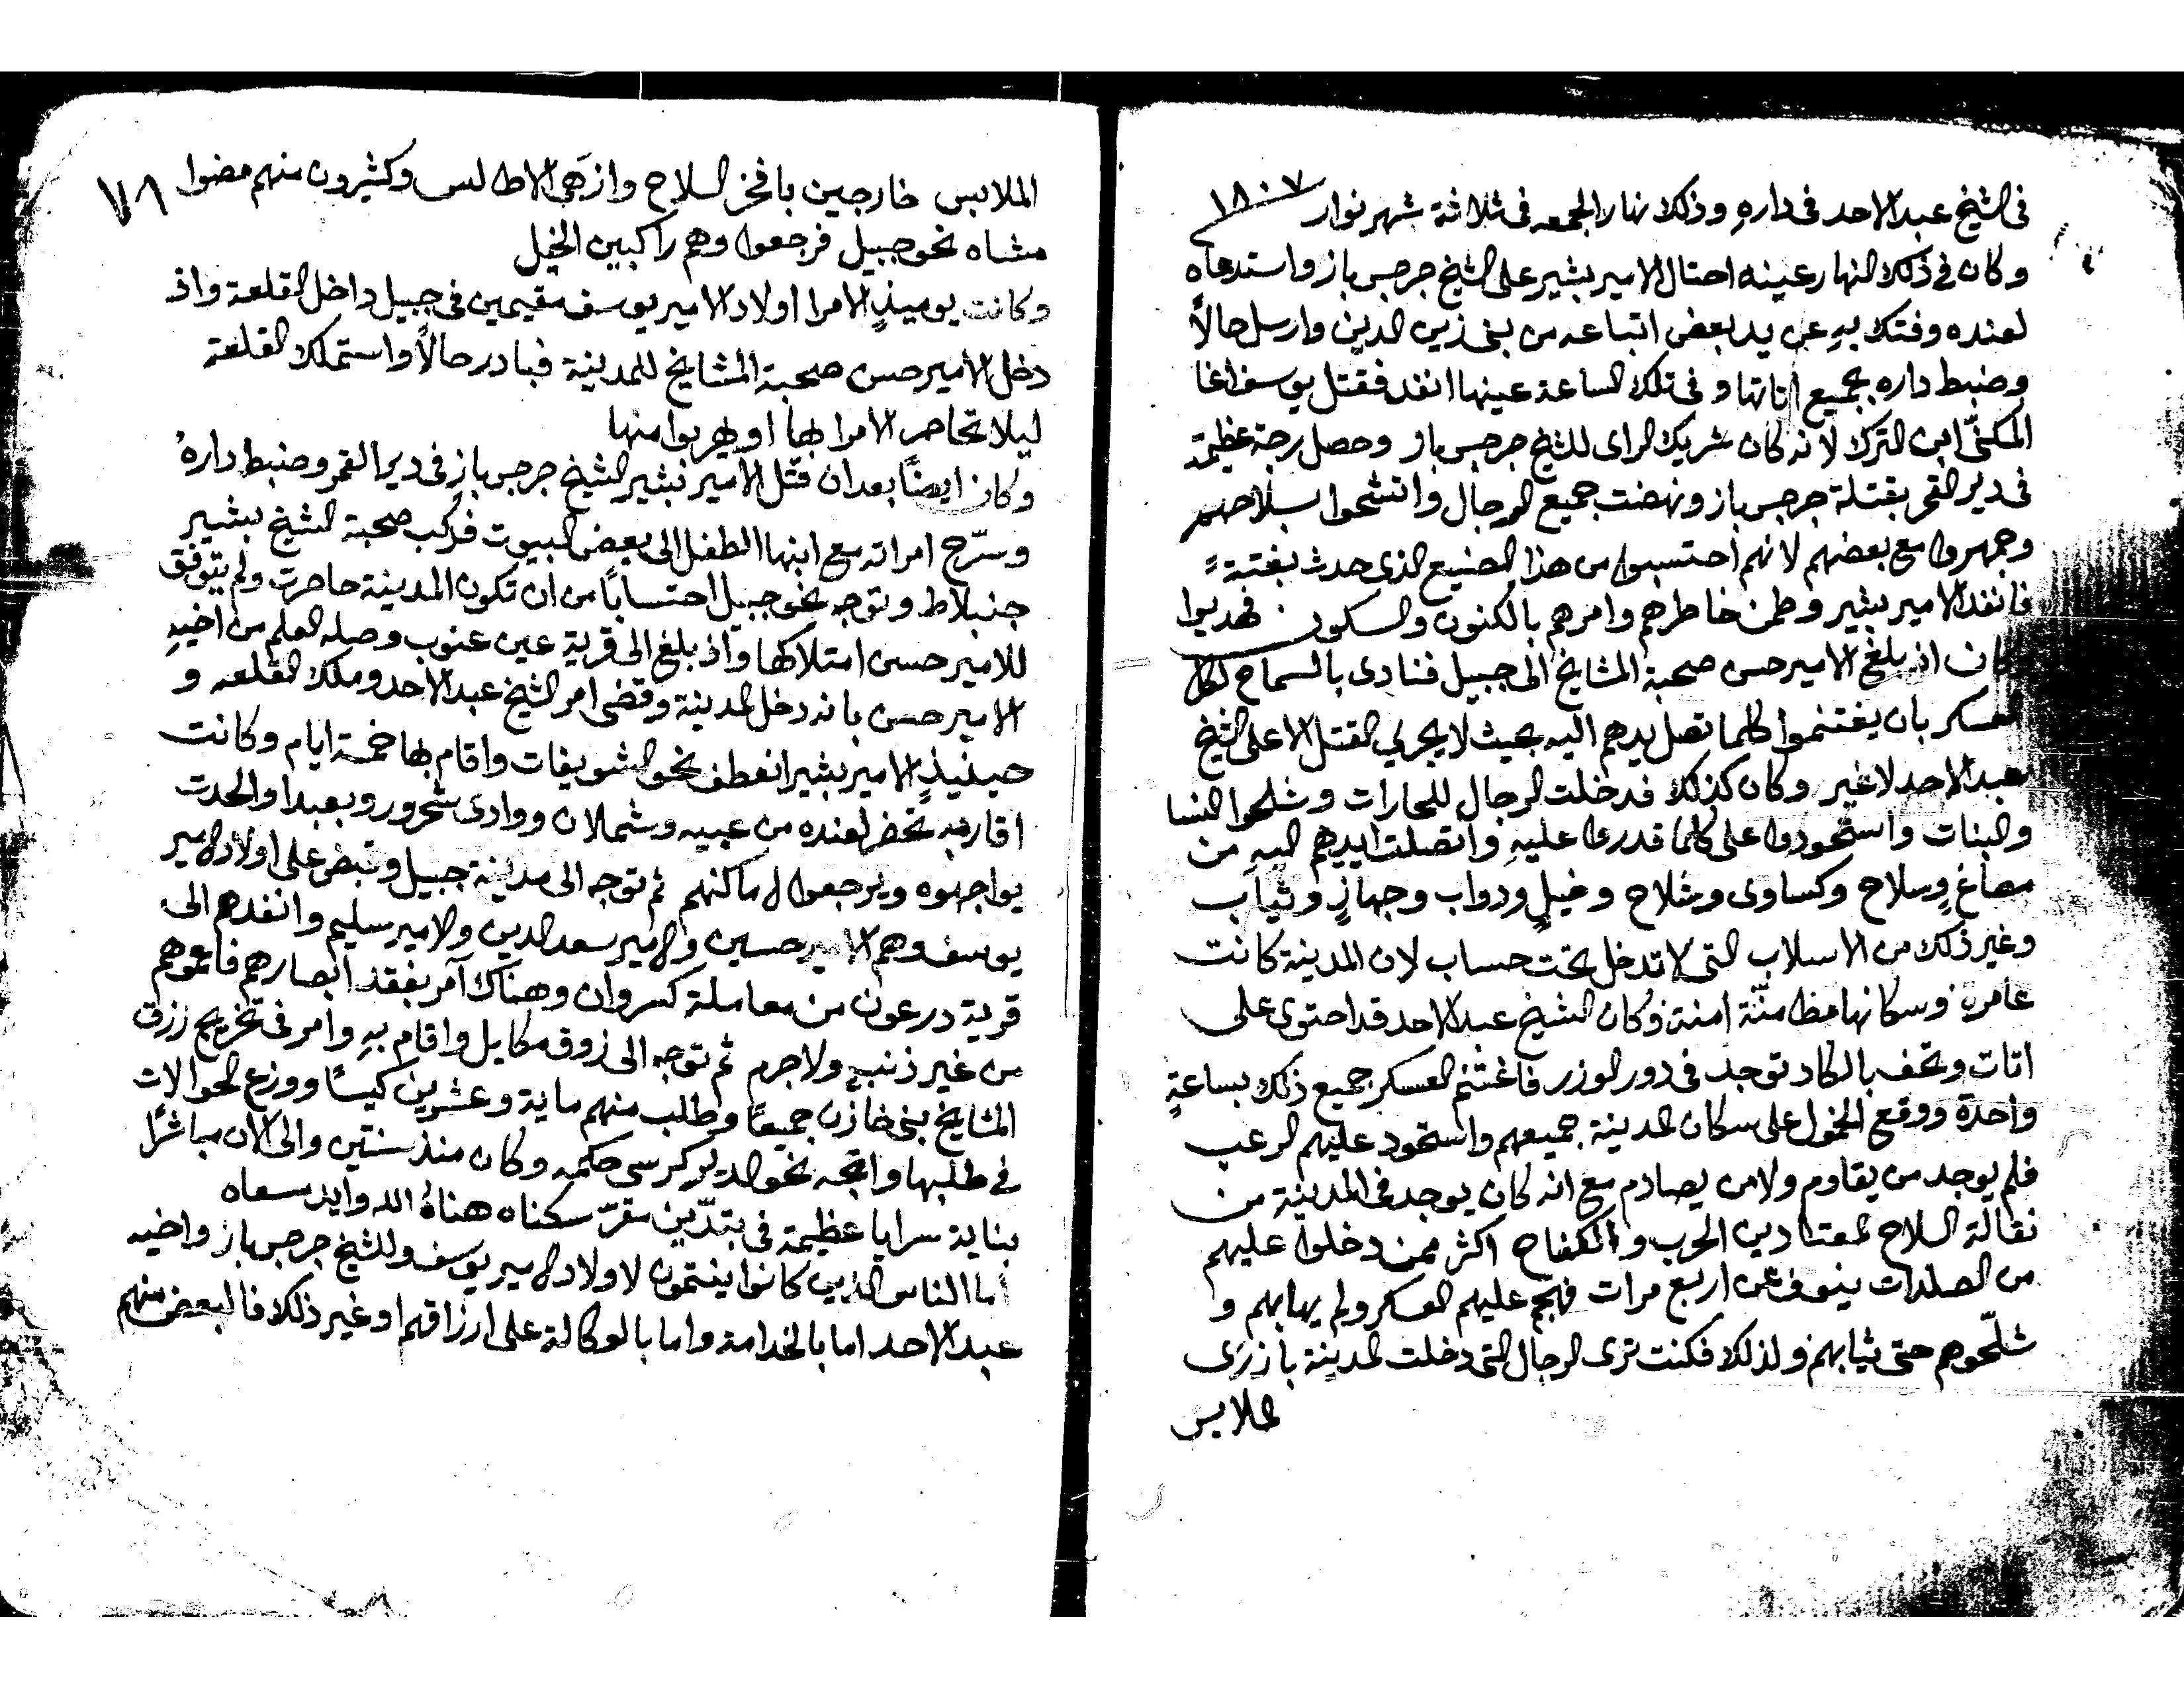 في الشيخ عبد الاحد في داره وذلك نهار الجمعه في ثلاثة شهر نوار ١٨٠٧
وكان في ذلك النهار عينه احتال الامير بشير على الشيخ جرجس باز واستدعاه
لعنده وفتك بهِ عن يد بعض اتباعه من بني زين الدين وارسل حالاً
وضبط داره بجميع اتاتها وفي تلك الساعة عينها انفد فقتل يوسف اغا
المكنّى ابن الترك لانه كان شريك الراى للشيخ جرجس باز وحصل رجة عظيمة
في دير القمر بقتلة جرجس باز ونهضت جميع الرجال واتشحوا بسلاحهم
وجمهروا مع بعضهم لانهم احتسبوا من هذا الصنيع الذي حدث بغتةً
فانفد الامير بشير وطمن خاطرهم وامرهم بالكنون والسكون فهديوا
وكان اذ بلغ الامير حسن صحبة المشايخ الى جبيل فنادى بالسماح لكل
العسكر بان يغتنموا كلما تصل يدهم اليه بحيث لا يجري القتل الا على الشيخ
عبد الاحد لا غير وكان كذلك فدخلت الرجال للحارات وشلحوا النسا
والبنات واستحودوا على كلما قدروا عليهِ واتصلت ايديهم اليهِ من
مصاغٍ وسلاح وكساوى ومشلاح وخيلٍ ودواب وجهازٍ وثياب
وغير ذلك من الاسلاب التي لا تدخل تحت حساب لان المدينة كانت
عامره وسكانها مطامنّة امنة وكان الشيخ عبد الاحد قد احتوى على
اتات وتحف بالكاد توجد في دور الوزر فاغتنم العسكر جميع ذلك بساعةٍ
واحدة ووقع الخمول على سكان المدينة جميعهم واستحود عليهم الرعب
فلم يوجد من يقاوم ولا من يصادم مع انه كان يوجد في المدينة من
نقالة السلاح المعتادين الحرب والكفاح اكثر ممن دخلوا عليهم
من الصلدات ينوف عن اربع مرات فهجم عليهم العسكر ولم يهابهم و
شلّحوهم حتى ثيابهم ولذلك فكنت ترى الرجال التي دخلت المدينة بازرَى
الملابس
٧٨
الملابس خارجين بافخر السلاح وازهَى الاطالس وكثيرون منهم مضوا
مشاه نحو جبيل فرجعوا وهم راكبين الخيل
وكانت يوميذٍ الامرا اولاد الامير يوسف مقيمين في جبيل داخل القلعة واذ
دخل الامير حسن صحبة المشايخ للمدينة فبادر حالاً واستملك القلعة
ليلا تحاصر الامرا بها او يهربوا منها
وكان ايضاً بعد ان قتل الامير بشير الشيخ جرجس باز في دير القمر وضبط دارهُ
وسرّح امراته مع ابنها الطفل الى بعض البيوت فركب صحبة الشيخ بشير
جنبلاط وتوجه نحو جبيل احتساباً من ان تكون المدينة حاصرت ولم يتوفق
للامير حسن امتلاكها واذ بلغ الى قرية عين عنوب وصله العلم من اخيهِ
الامير حسن بانه دخل المدينة وقضى امر الشيخ عبد الاحد وملك القلعه و
حينيذٍ الامير بشير انعطف نحو الشويفات واقام بها خمسة ايام وكانت
اقاربه تحضر لعنده من عبيه وشملان ووادى شحرور وبعبدا والحدت
يواجهوه ويرجعوا لاماكنهم ثم توجه الى مدينة جبيل وقبض على اولاد الامير
يوسف وهم الامير حسين والامير سعد الدين والامير سليم وانفدهم الى
قرية درعون من معاملة كسروان وهناك آمر بفقد ابصارهم فاعموهم
من غير ذنبٍ ولا جرم ثم توجه الى زوق مكايل واقام بهِ وامر في تخريج رزق
المشايخ بني خازن جميعاً وطلب منهم ماية وعشرين كيساً ووزع الحوالات
في طلبها واتجه نحو الدير كرسي حكمه وكان منذ سنتين والى الان مباشراً
بناية سرايا عظيمة في بتدّين مقرّ سكناه هناهُ الله وايد مسعاه
اما الناس الذين كانوا ينتمون لاولاد الامير يوسف وللشيخ جرجس باز واخيه
عبد الاحد اما بالخدامة واما بالوكالة على ارزاقهم او غير ذلك فالبعض منهم